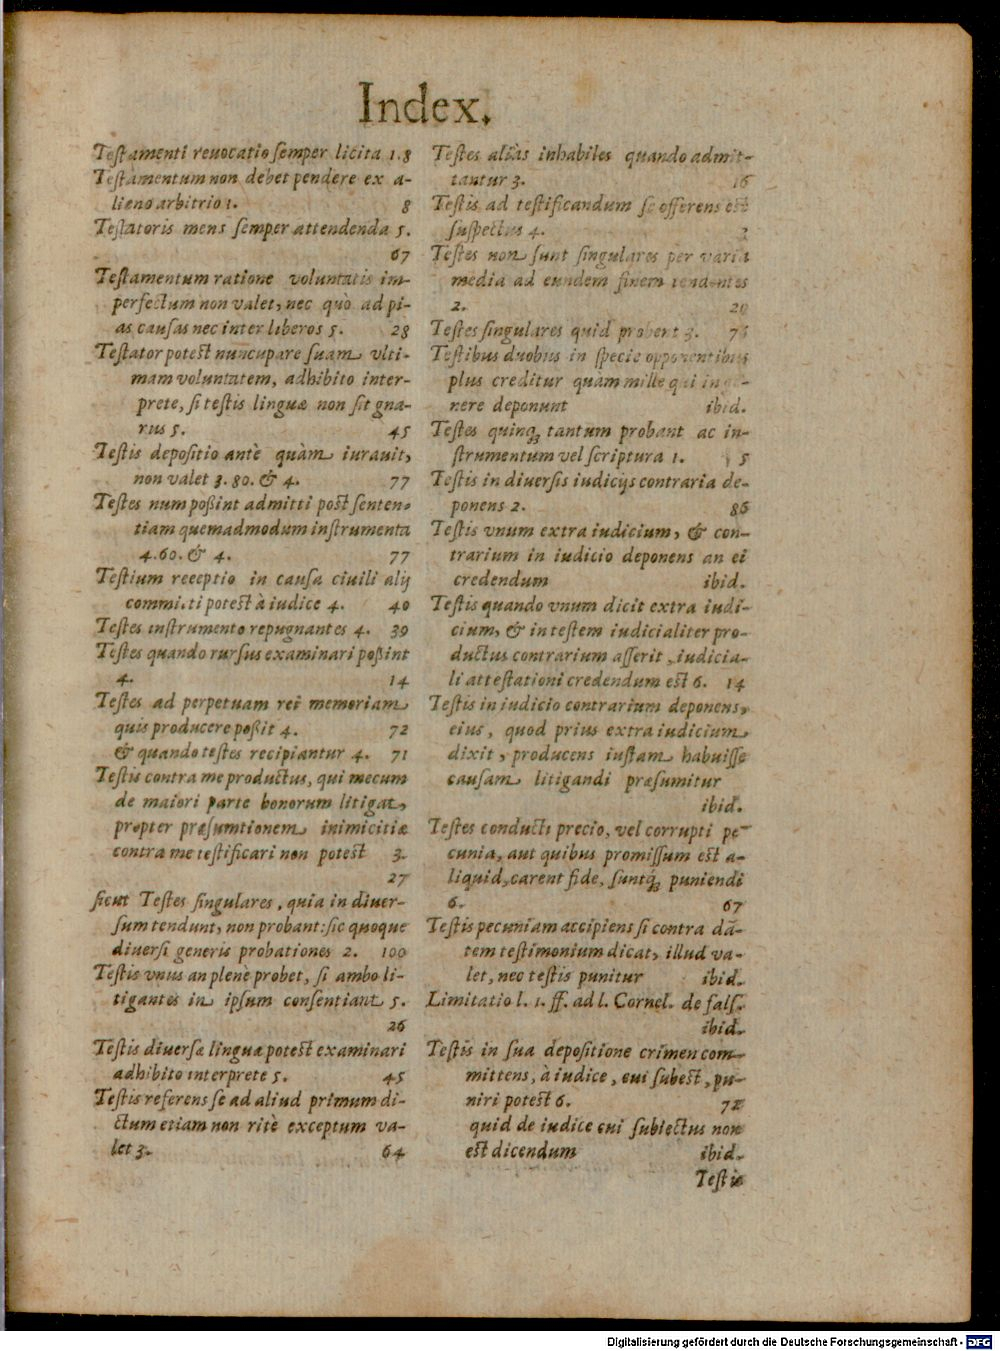 Index.
Testamenti reuocatio semper licita 1. 8
Testamentum non debet pendere ex a-
lieno arbitrio 1. 8
Testatoris mens semper attendenda 5.
67
Testamentum ratione voluntatis im-
perfectum non valet, nec quò ad pi-
as causas nec inter liberos 5. 28
Testator potest nuncupare suam vlti-
mam voluntatem, adhibito inter-
prete, si testis linguæ non sit gna-
rus 5. 45
Testis depositio antè quàm iurauit,
non valet 3. 80. & 4. 77
Testes num poßint admitti post senten-
tiam quemadmodum instrumenta
4. 60. & 4. 77
Testium receptio in causa ciuili alij
committi potest à iudice 4. 40
Testes instrumento repugnantes 4. 39
Testes quando rursus examinari poßint
4. 14
Testes ad perpetuam rei memoriam
quis producere poßit 4. 72
& quando testes recipiantur 4. 71
Testis contra me productus, qui mecum
de maiori parte bonorum litigat,
propter præsumtionem inimicitiæ
contra me testificari non potest 3.
27
sicut Testes singulares, quia in diuer-
sum tendunt, non probant: sic quoque
diuersi generis probationes 2. 100
Testis vnus an plenè probet, si ambo li-
tigantes in ipsum consentiant 5.
26
Testis diuersæ linguæ potest examinari
adhibito interprete 5. 45
Testis referens se ad aliud primum di-
ctum etiam non ritè exceptum va-
let 3. 64
Testes aliàs inhabiles quando admit-
tantur 3. 16
Testis ad testificandum se offerens est
suspectus 4.
Testes non sunt singulares per varia
media ad eundem finem tendentes
2. 20
Testes singulares quid probent 3.
Testibus duobus in specie opponentibus
plus creditur quàm mille qui in ge-
nere deponunt ibid.
Testes quinq; tantum probant ac in-
strumentum vel scriptura 1. 5
Testis in diuersis iudicijs contraria de-
ponens 2. 86
Testis vnum extra iudicium, & con-
trarium in iudicio deponens an ei
credendum ibid.
Testis quando vnum dicit extra iudi-
cium, & in testem iudicialiter pro-
ductus contrarium asserit, iudicia-
li attestationi credendum est 6. 14
Testis in judicio contrarium deponens,
eius, quod prius extra iudicium
dixit, producens iustam habuisse
causam litigandi præsumitur
ibid.
Testes conducti precio, vel corrupti pe-
cunia, aut quibus promissum est a-
liquid, carent fide, suntq; puniendi
6. 67
Testis pecuniam accipiens si contra dā-
tem testimonium dicat, illud va-
let, nec testis punitur ibid.
Limitatio l. 1. ff. ad l. Cornel. de fals.
ibid.
Testis in sua depositione crimen com-
mittens, à iudice, cui subest, pu-
niri potest 6. 72
quid de iudice cui subiectus non
est dicendum ibid.
Testis
Digitalisierung gefördert durch die Deutsche Forschungsgemeinschaft - DFG